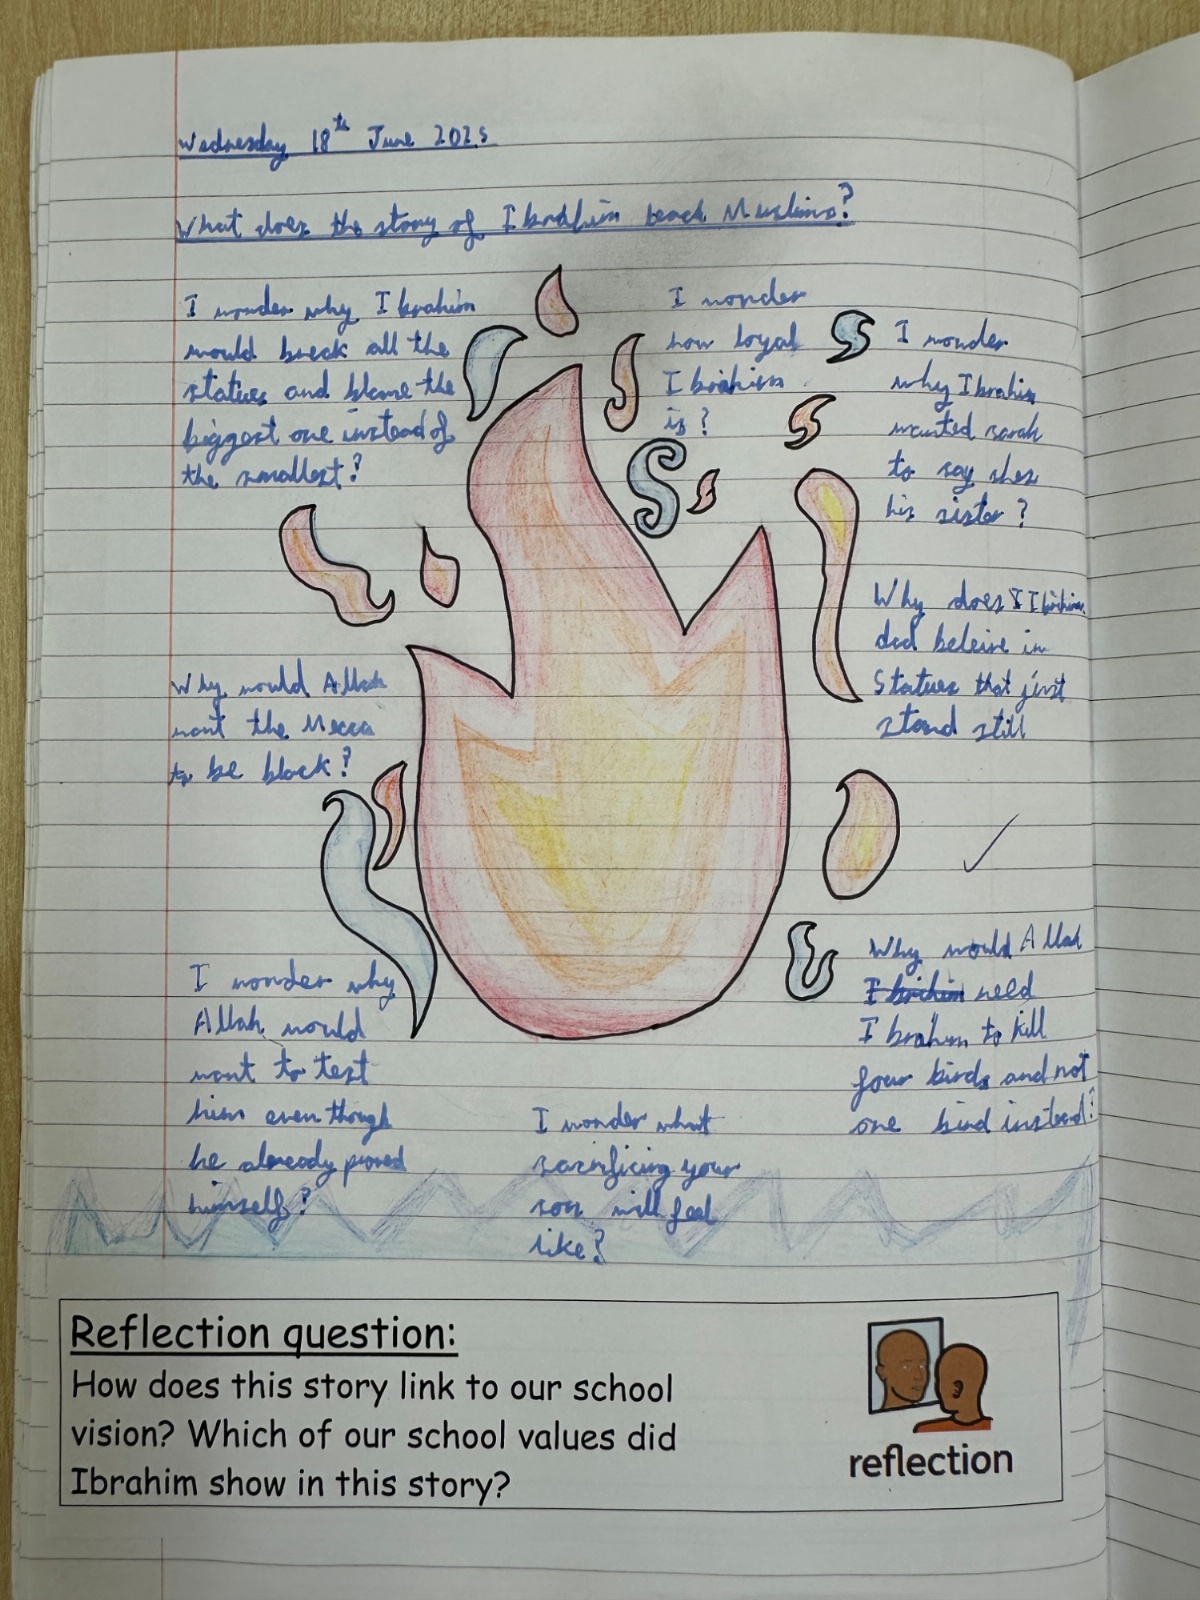 Wednesday 18th June 2025
What does the story of Ibrahim teach Muslims?
I wonder why Ibrahim
would break all the
statues and blame the
biggest one instead of
the smallest?
I wonder
how loyal
Ibrahim
is?
I wonder
why Ibrahim
wanted sarah
to say shes
his sister?
Why does Ibrahim
dad beleive in
statues that just
stand still
Why would Allah
want the Mecca
to be black?
Why would Allah
Ibrihim need
Ibrahim to kill
four birds and not
one bird instead?
I wonder why
Allah would
want to test
him even though
he already proved
himself?
I wonder what
sacrificing your
son will feel
like?
Reflection question:
How does this story link to our school
vision? Which of our school values did
Ibrahim show in this story?
reflection